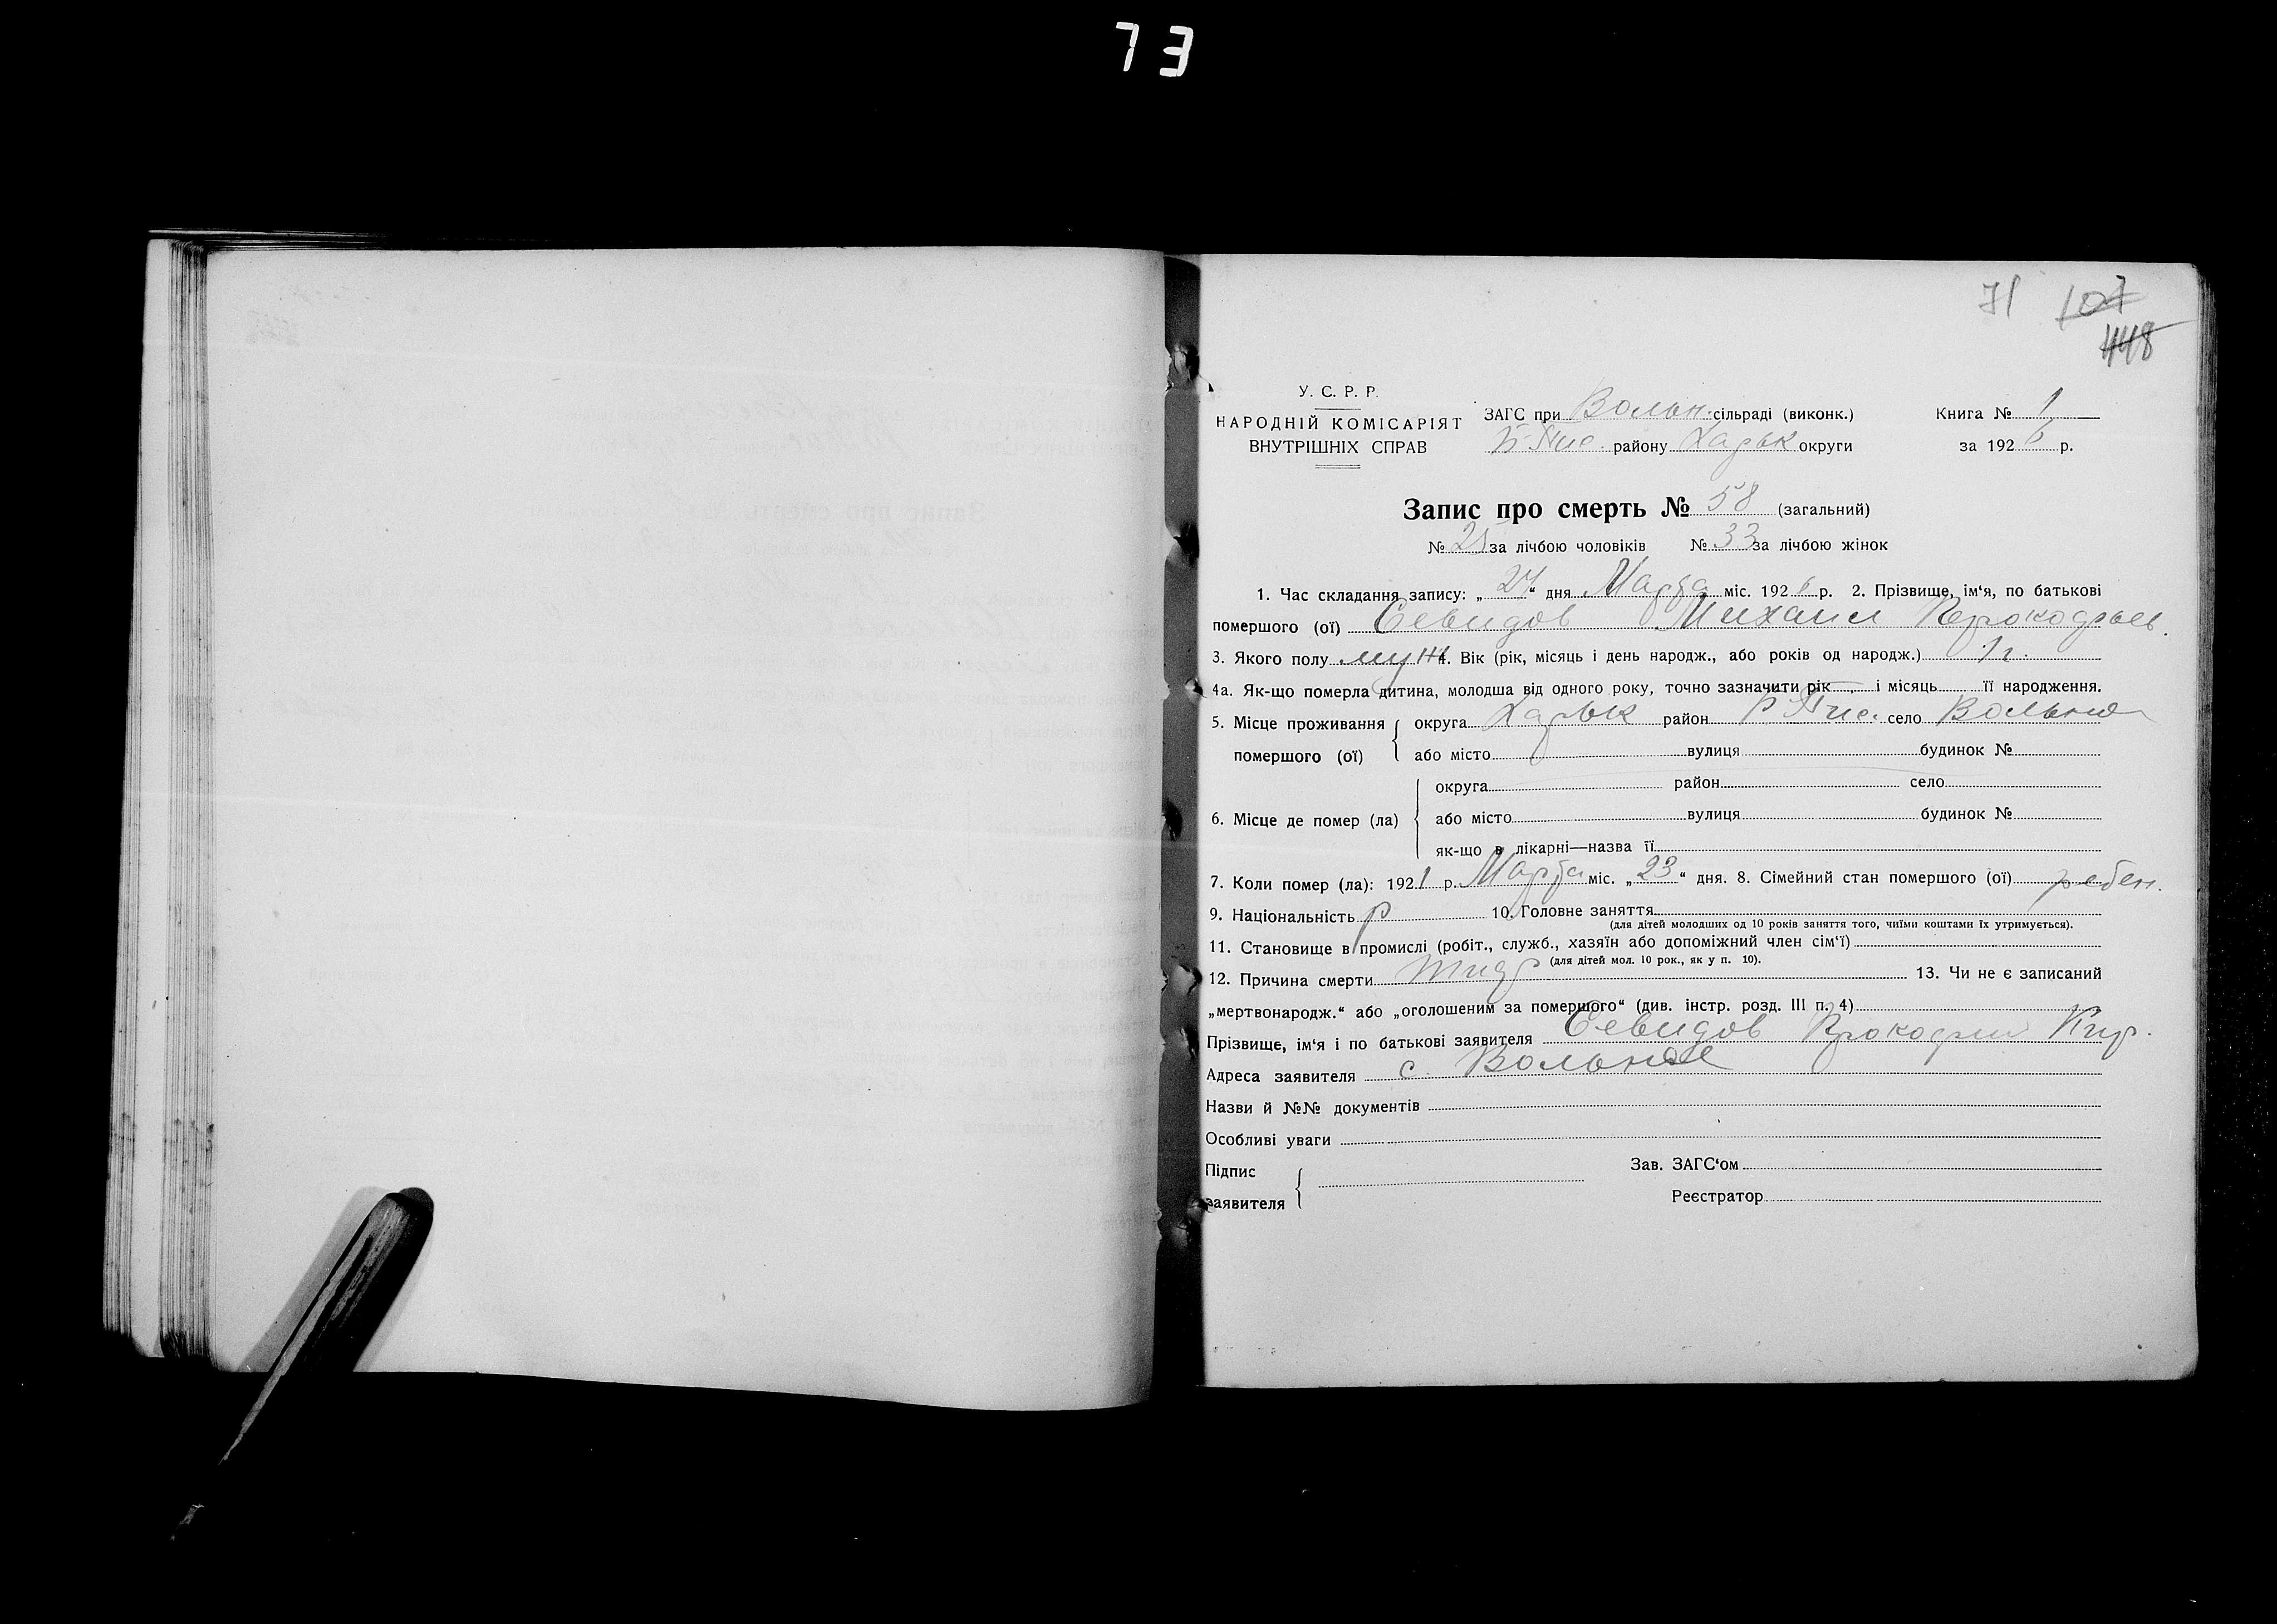 73
71 107
448
У. С. Р. Р.
НАРОДНІЙ КОМІСАРІЯТ
ВНУТРІШНІХ СПРАВ
ЗАГС при Вольн. сільраді (виконк.)
Б Пис. району Харьк округи
Книга № 1
за 1926 р.
Запис про смерть № 58 (загальний)
№ 25 за лічбою чоловіків № 33 за лічбою жінок
1. Час складання запису: „27“ дня Марта міс. 192 р. 2. Прізвище, ім'я, по батькові
помершого (ої) Севидов Михаил
3. Якого полу муж 4. Вік (рік, місяць і день народж., або років од народж.) 1 г.
4а. Як-що померла дитина, молодша від одного року, точно зазначити рік і місяць її народження.
5. Місце проживання помершого (ої) округа Харьк район Б Пис. село Вольное
або місто вулиця будинок №
6. Місце де помер (ла) округа район село
або місто вулиця будинок №
як-що в лікарні—назва її
7. Коли помер (ла): 192 р. Марта міс. „23“ дня. 8. Сімейний стан помершого (ої) ребен.
9. Національність р 10. Головне заняття
(для дітей молодших од 10 років заняття того, чиїми коштами їх утримується).
11. Становище в промислі (робіт., служб., хазяїн або допоміжний член сім'ї)
(для дітей мол. 10 рок., як у п. 10).
12. Причина смерти 13. Чи не є записаний
„мертвонародж.“ або „оголошеним за помершого“ (див. інстр. розд. III п. 4)
Прізвище, ім'я і по батькові заявителя Севидов Кир.
Адреса заявителя с. Вольное
Назви й №№ документів
Особливі уваги
Підпис заявителя
Зав. ЗАГС'ом
Реєстратор